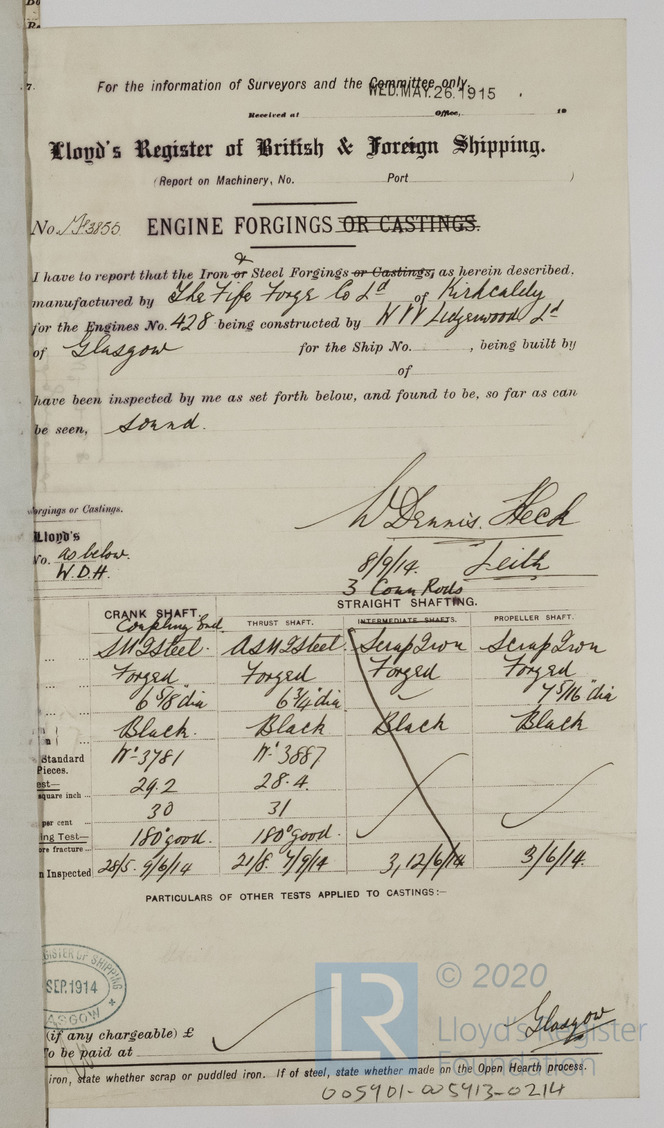 7.
For the information of Surveyors and the Committee only.
WED. MAY. 26. 1915
Received at Office, 19
Lloyd's Register of British & Foreign Shipping.
(Report on Machinery, No. Port )
No. ENGINE FORGINGS OR CASTINGS.
&
I have to report that the Iron or Steel Forgings or Castings, as herein described,
manufactured by The Fife Forge Co Ld of Kirkcaldy
for the Engines No. 428 being constructed by W V V Lidgerwood Ld
of Glasgow for the Ship No. , being built by
of
have been inspected by me as set forth below, and found to be, so far as can
be seen, sound.
Forgings or Castings.
Lloyd's
No. as below.
W.D.H.
W Dennis. Heck
8/9/14. Leith
3 Conn Rods
STRAIGHT SHAFTING.
CRANK SHAFT. THRUST SHAFT. INTERMEDIATE SHAFTS. PROPELLER SHAFT.
Coupling End.
S M I Steel. A S M I Steel. Scrap Iron Scrap Iron
Forged Forged Forged Forged
6 5/8" dia 6 3/4" dia 7 5/16" dia
Black. Black Black Black
Standard No 3781 No 3887
Pieces.
est— 29.2 28.4.
square inch
30 31
per cent
ing Test— 180° good. 180° good.
ore fracture—
n Inspected 28/5. 9/6/14 21/8. 7/9/14 3, 12/6/14 3/6/14.
PARTICULARS OF OTHER TESTS APPLIED TO CASTINGS:—
GISTER OF SHIPPING
SEP. 1914
ASGOW
LR © 2020
Lloyd's Register
Foundation
Glasgow
(if any chargeable) £
To be paid at
iron, state whether scrap or puddled iron. If of steel, state whether made on the Open Hearth process.
005901-005913-0214